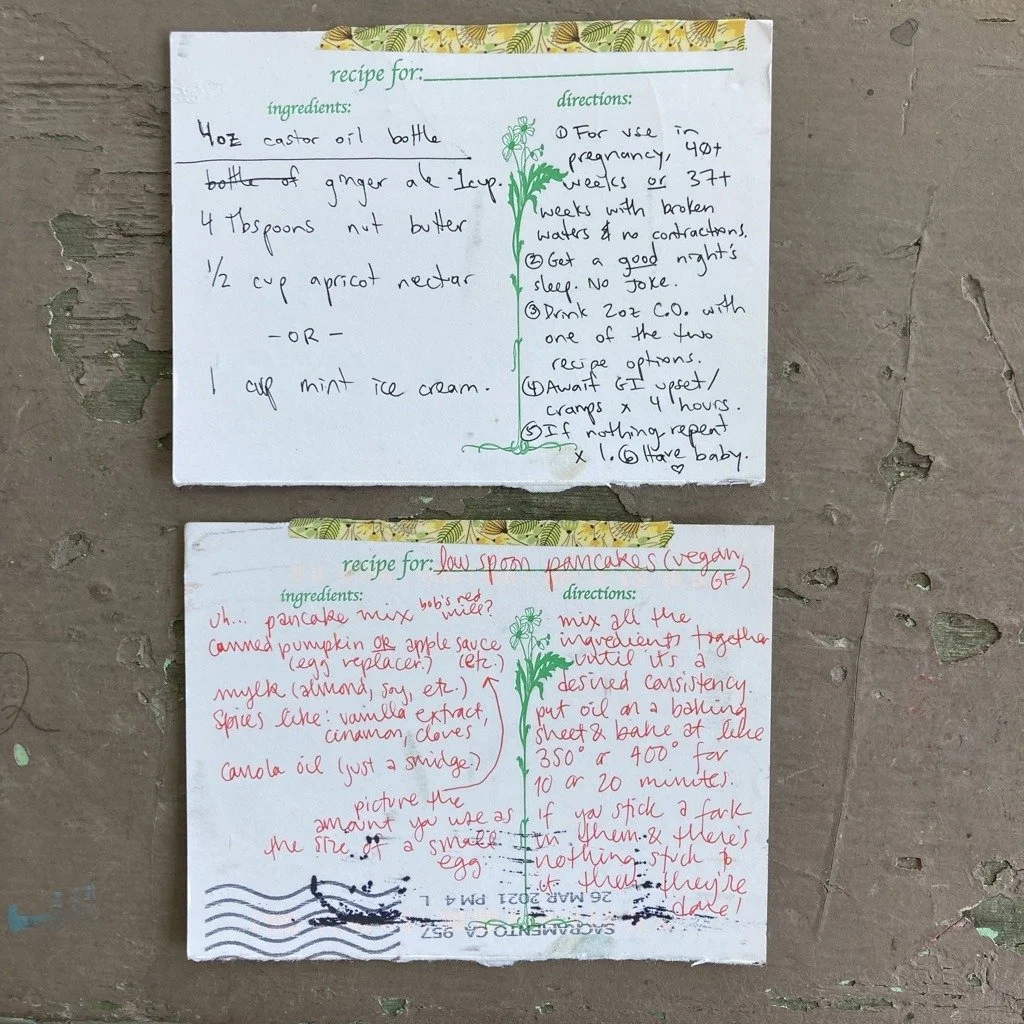 recipe for:
ingredients:
4oz castor oil bottle
bottle of ginger ale - 1cup.
4 Tbspoons nut butter
1/2 cup apricot nectar
- OR -
1 cup mint ice cream.
directions:
① For use in
pregnancy, 40+
weeks or 37+
weeks with broken
waters & no contractions.
② Get a good night's
sleep. No Joke.
③ Drink 2oz C.O. with
one of the two
recipe options.
④ Await GI upset/
cramps x 4 hours.
⑤ If nothing repeat
x 1. ⑥ Have baby.
♡
recipe for: low spoon pancakes (vegan,
GF)
ingredients:
uh... pancake mix bob's red
mill?
canned pumpkin OR apple sauce
(egg replacer) (etc.)
mylk (almond, soy, etc.)
spices like: vanilla extract,
cinnamon, cloves
canola oil (just a smidge)
picture the
amount you use as
the size of a small
egg
directions:
mix all the
ingredients together
until it's a
desired consistency.
put oil on a baking
sheet & bake at like
350° or 400° for
10 or 20 minutes.
if you stick a fork
in them & there's
nothing stuck to
it then they're
done!
SACRAMENTO CA 957
26 MAR 2021 PM 4 L